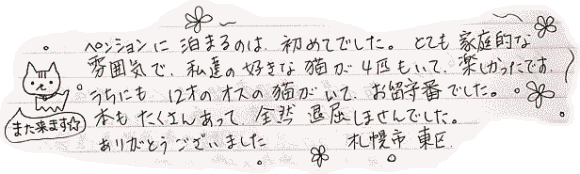 ペンションに泊まるのは、初めてでした。とても家庭的な
雰囲気で、私達の好きな猫が4匹もいて、楽しかったです。
うちにも 12才のオスの猫がいて、お留守番でした。
本もたくさんあって、全然 退屈しませんでした。
ありがとうございました 札幌市 東区.
また来ます☆